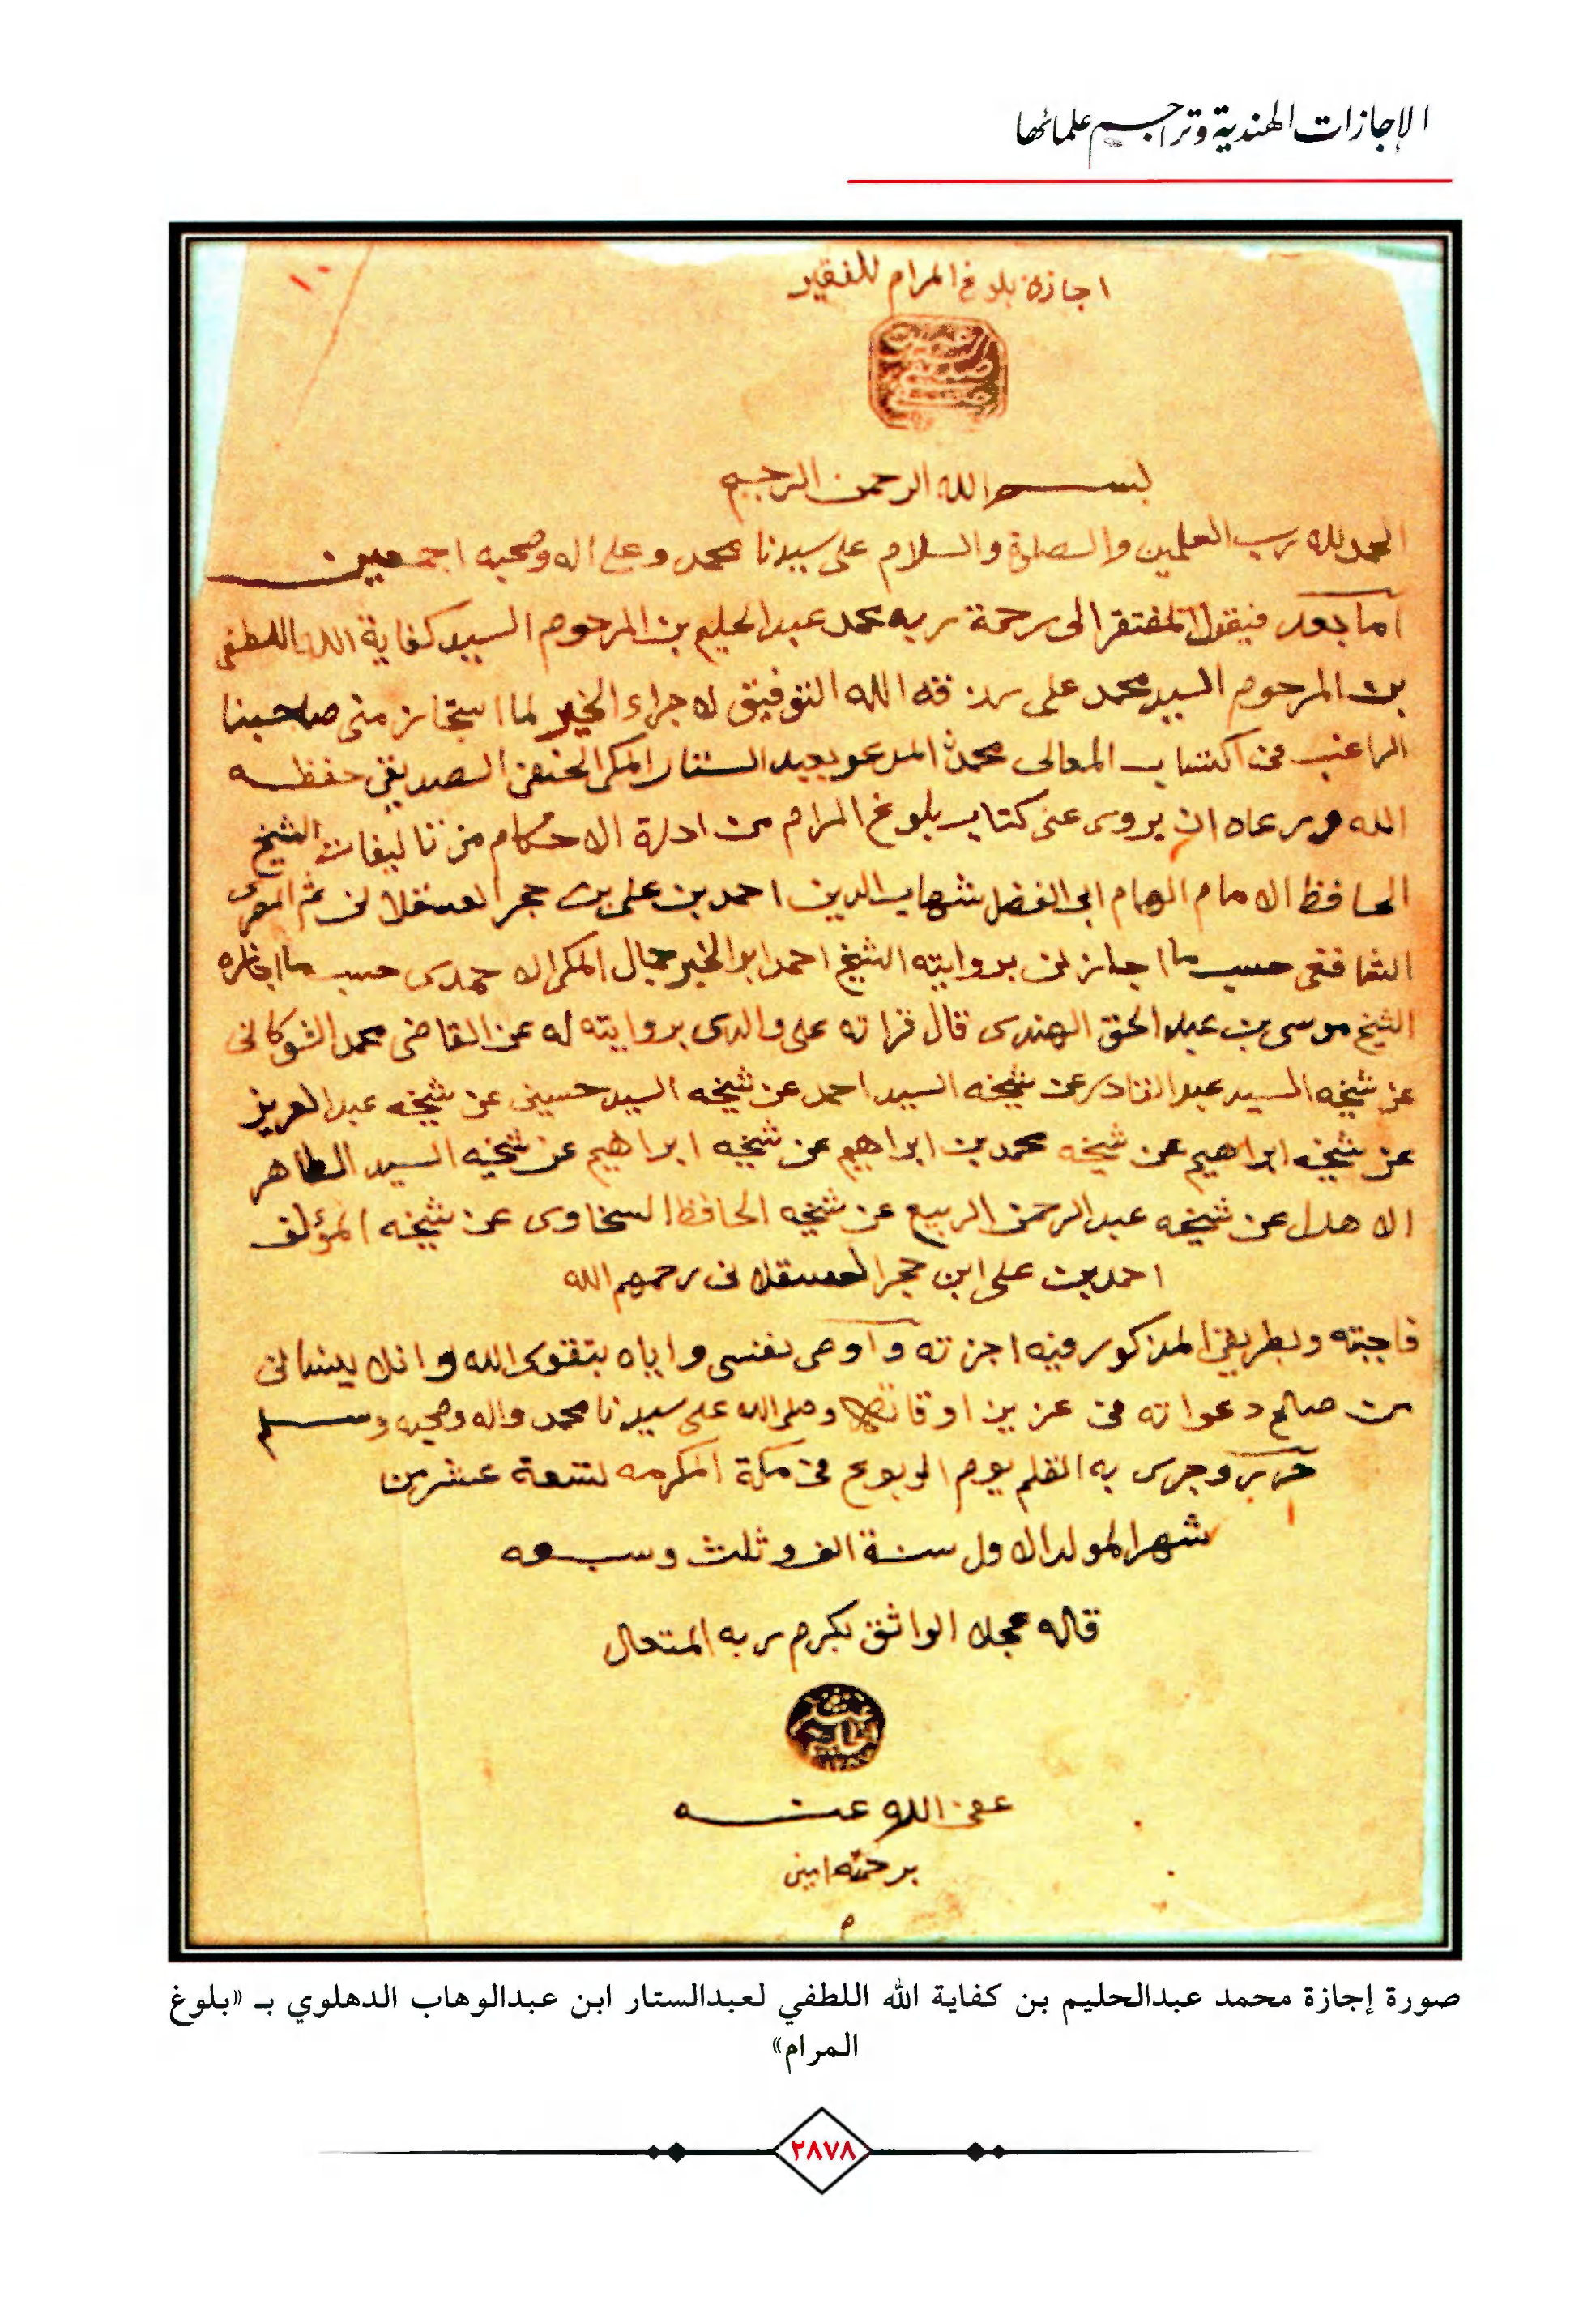 الإجازات الهندية وتراجم علمائها
١٠
اجازة بلوغ المرام للفقير
بسم الله الرحمن الرحيم
الحمد لله رب العلمين والصلوة والسلام على سيدنا محمد وعلى اله وصحبه اجمعين
اما بعد فيقول المفتقر الى رحمة ربه محمد عبد الحليم بن المرحوم السيد كفاية الله اللطفي
بن المرحوم السيد محمد على رزقه الله التوفيق لاجراء الخير لما استجاز منى صاحبنا
الراغب فى اكتساب المعالى محمد المدعو بعبد الستار المكى الحنفى الصديقى حفظه
الله ورعاه ان يروى عنى كتاب بلوغ المرام من ادلة الاحكام من تاليفات الشيخ
الحافظ الامام الهمام ابى الفضل شهاب الدين احمد بن على بن حجر العسقلانى ثم المصرى
الشافعى حسب ما اجازنى بروايته الشيخ احمد ابو الخير جمال المكى الاحمدى حسب ما اجازه
الشيخ موسى بن عبد الحق الهندى قال قراته على والدى بروايته له عن القاضى محمد الشوكانى
عن شيخه السيد عبد القادر عن شيخه السيد احمد عن شيخه السيد حسينى عن شيخه عبد العزيز
عن شيخه ابراهيم عن شيخه محمد بن ابراهيم عن شيخه ابراهيم عن شيخه السيد الطاهر
الاهدل عن شيخه عبد الرحمن الربيع عن شيخه الحافظ السخاوى عن شيخه المؤلف
احمد بن على ابن حجر العسقلانى رحمهم الله
فاجبته وبطريقى المذكور فيه اجزته واوصى نفسى واياه بتقوى الله وانلا ينسانى
من صالح دعواته فى عزيز اوقاته وصلى الله على سيدنا محمد واله وصحبه وسلم
حرر وجرى به القلم يوم الربوع فى مكة المكرمه لتسعة عشرين
شهر المولد الاول سنة الف وثلث وسبعه
قاله عجلا الواثق بكرم ربه المتعال
عفى الله عنه
برحمته امين
م
صورة إجازة محمد عبدالحليم بن كفاية الله اللطفي لعبدالستار ابن عبدالوهاب الدهلوي بـ «بلوغ
المرام»
٢٨٧٨